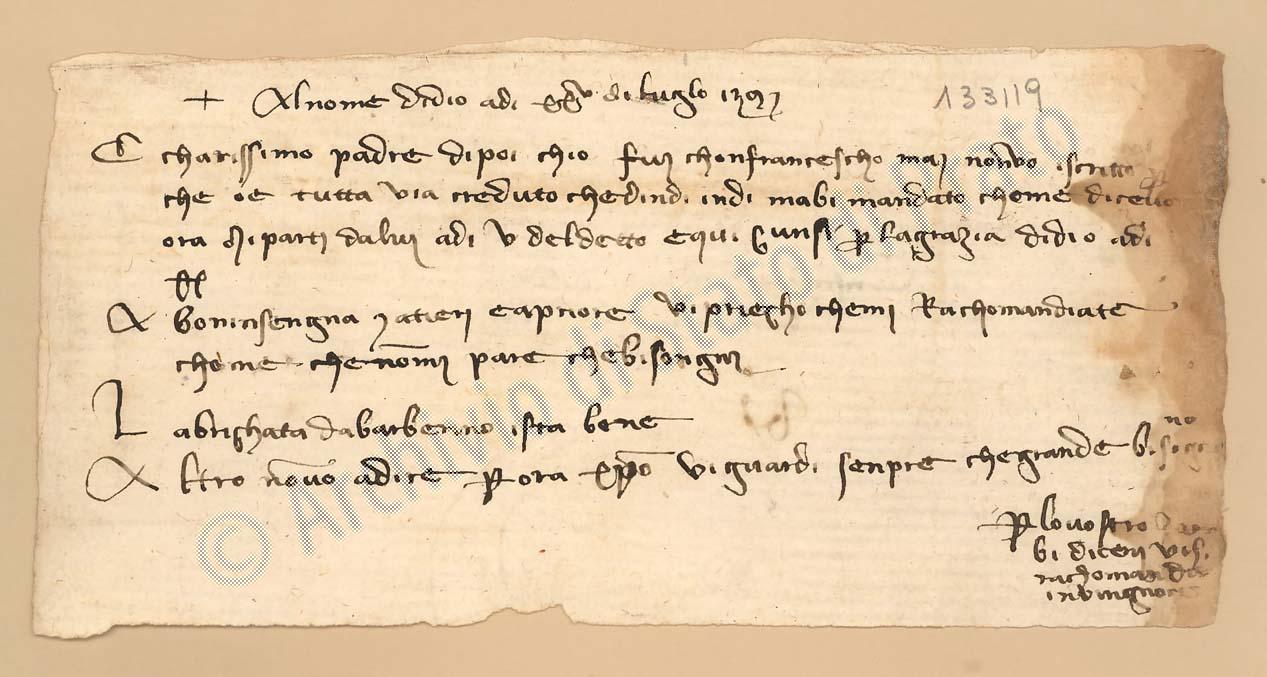 + Al nome didio adi di luglo
133119
Charissimo padre dipoi chio fui chonfrancescho mai nonvo iscritto
che oe tutta via creduto chedindi indi mabi mandato chome dicello
ora mi parti dalui adi v deldetto equi gunsi p lagrazia didio adi
A boninsengna vi priegho chemi Rachomandiate
chome che nomi pare chebisongni
La brighata dabarberino ista bene
Altro novo adire p ora xpo vi guardi senpre chegrande
no
p lovostro
di
rachomanda
invingnone
© Archivio di Stato di Prato